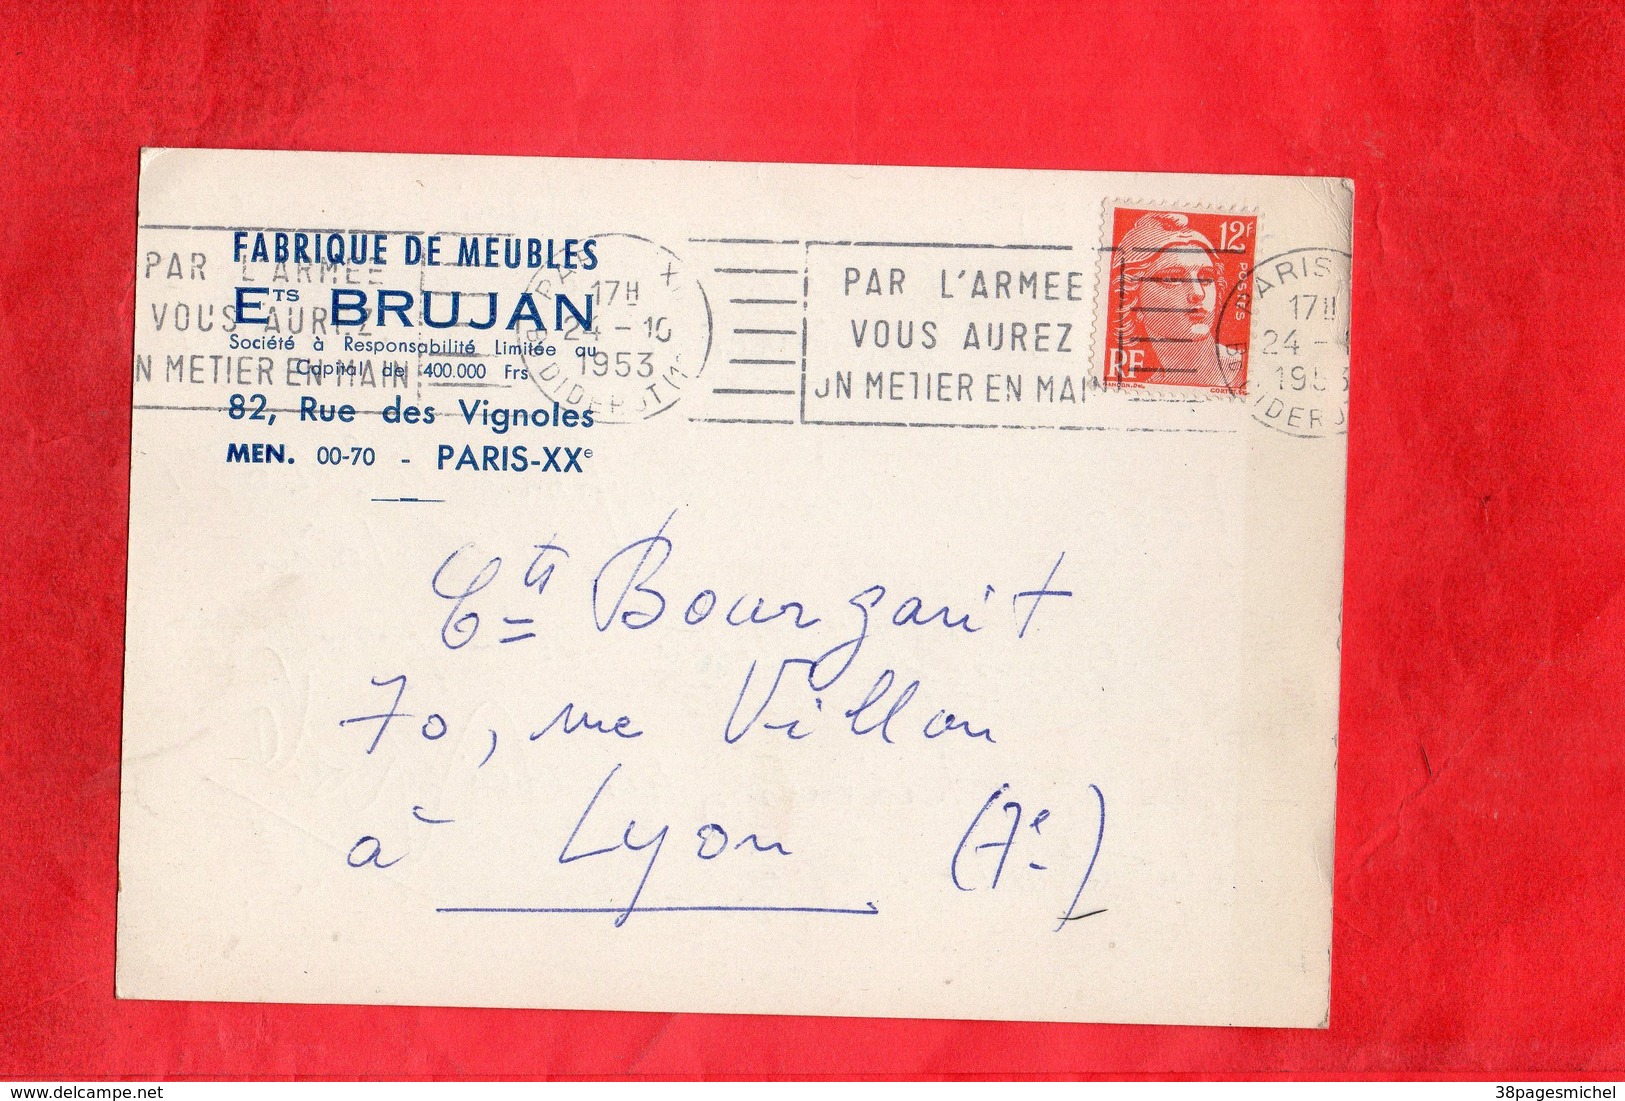 FABRIQUE DE MEUBLES
Ets BRUJAN
Société à Responsabilité Limitée au
Capital de 400.000 Frs
82, Rue des Vignoles
MEN. 00-70 - PARIS-XXe
PAR L'ARMEE
VOUS AUREZ
UN METIER EN MAIN
17H
24-10
1953
BD DIDEROT
PAR L'ARMEE
VOUS AUREZ
UN METIER EN MAIN
12F
POSTES
RF
PARIS
17H
24 -
1953
BD DIDEROT
Ets Bourgarit
70, rue Villon
à Lyon (7e)
38pagesmichel